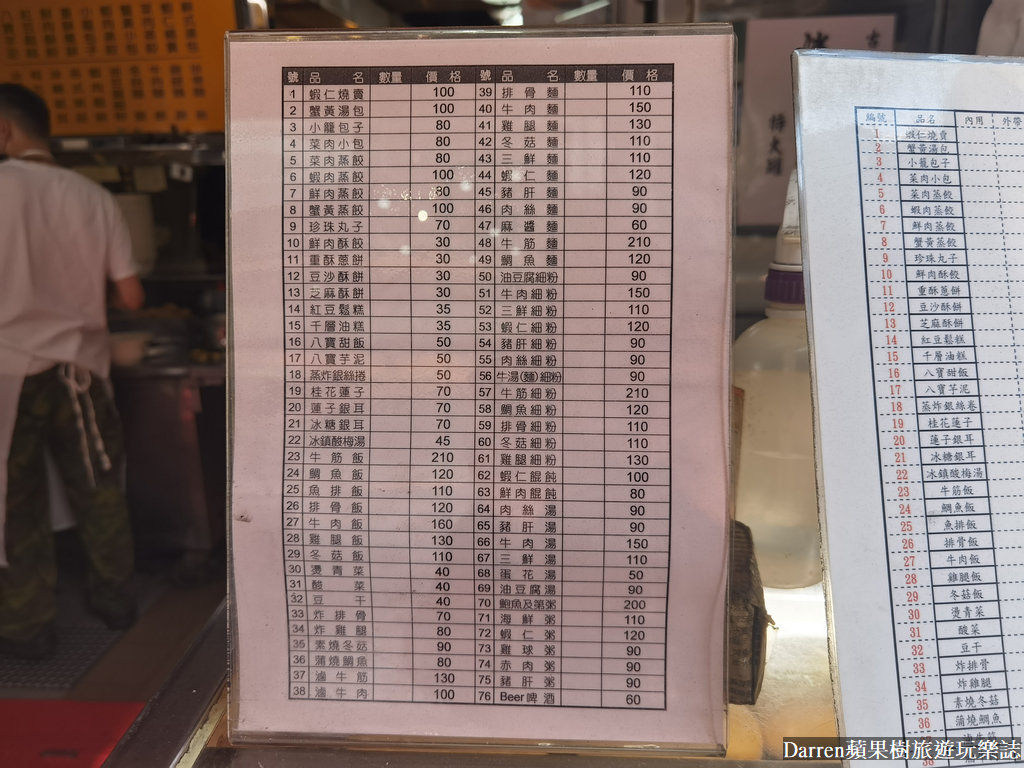 號 品名 數量 價格
1 蝦仁燒賣 100
2 蟹黃湯包 100
3 小籠包子 80
4 菜肉小包 80
5 菜肉蒸餃 80
6 蝦肉蒸餃 100
7 鮮肉蒸餃 80
8 蟹黃蒸餃 100
9 珍珠丸子 70
10 鮮肉酥餃 30
11 重酥蔥餅 30
12 豆沙酥餅 30
13 芝麻酥餅 30
14 紅豆鬆糕 35
15 千層油糕 35
16 八寶甜飯 50
17 八寶芋泥 50
18 蒸炸銀絲捲 50
19 桂花蓮子 70
20 蓮子銀耳 70
21 冰糖銀耳 70
22 冰鎮酸梅湯 45
23 牛筋飯 210
24 鯛魚飯 120
25 魚排飯 110
26 排骨飯 120
27 牛肉飯 160
28 雞腿飯 130
29 冬菇飯 110
30 燙青菜 40
31 酸菜 40
32 豆干 40
33 炸排骨 70
34 炸雞腿 80
35 素燒冬菇 90
36 蒲燒鯛魚 80
37 滷牛筋 130
38 滷牛肉 100
號 品名 數量 價格
39 排骨麵 110
40 牛肉麵 150
41 雞腿麵 130
42 冬菇麵 110
43 三鮮麵 110
44 蝦仁麵 120
45 豬肝麵 90
46 肉絲麵 90
47 麻醬麵 60
48 牛筋麵 210
49 鯛魚麵 120
50 油豆腐細粉 90
51 牛肉細粉 150
52 三鮮細粉 110
53 蝦仁細粉 120
54 豬肝細粉 90
55 肉絲細粉 90
56 牛湯(麵)細粉 90
57 牛筋細粉 210
58 鯛魚細粉 120
59 排骨細粉 110
60 冬菇細粉 110
61 雞腿細粉 130
62 蝦仁餛飩 100
63 鮮肉餛飩 80
64 肉絲湯 90
65 豬肝湯 90
66 牛肉湯 150
67 三鮮湯 110
68 蛋花湯 50
69 油豆腐湯 90
70 鮑魚及第粥 200
71 海鮮粥 110
72 蝦仁粥 120
73 雞球粥 90
74 赤肉粥 90
75 豬肝粥 90
76 Beer啤酒 60
編號 品名 內用 外帶
1 蝦仁燒賣
2 蟹黃湯包
3 小籠包子
4 菜肉小包
5 菜肉蒸餃
6 蝦肉蒸餃
7 鮮肉蒸餃
8 蟹黃蒸餃
9 珍珠丸子
10 鮮肉酥餃
11 重酥蔥餅
12 豆沙酥餅
13 芝麻酥餅
14 紅豆鬆糕
15 千層油糕
16 八寶甜飯
17 八寶芋泥
18 蒸炸銀絲卷
19 桂花蓮子
20 蓮子銀耳
21 冰糖銀耳
22 冰鎮酸梅湯
23 牛筋飯
24 鯛魚飯
25 魚排飯
26 排骨飯
27 牛肉飯
28 雞腿飯
29 冬菇飯
30 燙青菜
31 酸菜
32 豆干
33 炸排骨
34 炸雞腿
35 素燒冬菇
36 蒲燒鯛魚
38
Darren蘋果樹旅遊玩樂誌